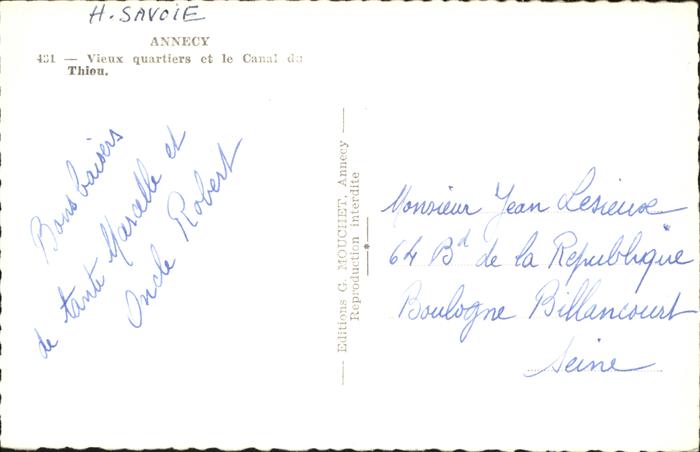 H. SAVOIE
ANNECY
431 — Vieux quartiers et le Canal du
Thiou.
Bons baisers
de tante Marcelle et
Oncle Robert
Editions G. MOUCHET, Annecy
Reproduction interdite
Monsieur Jean Lesieux
64 Bd de la République
Boulogne Billancourt
Seine